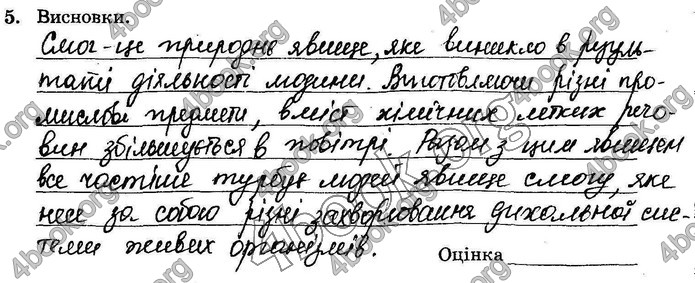 5. Висновки.
Смог - це природне явище, яке виникло в резуль-
таті діяльності людини. Виготовляючи різні про-
мислові предмети, вміст хімічних летких речо-
вин збільшується в повітрі. Разом з цим явищем
все частіше турбує людей явище смогу, яке
несе за собою різні захворювання дихальної сис-
теми живих організмів.
Оцінка
4book.org